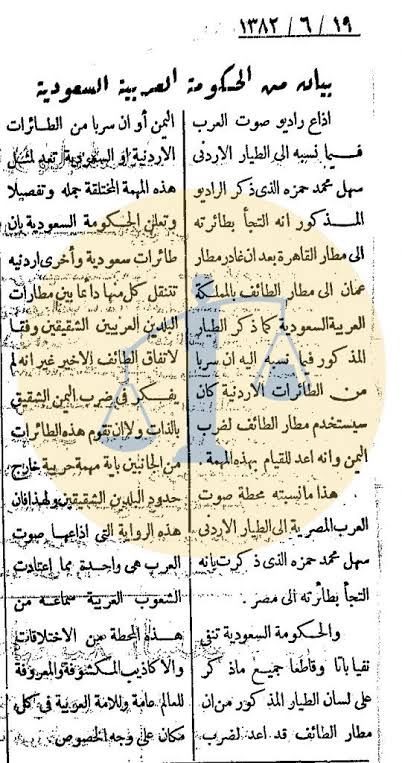 ١٩ / ٦ / ١٣٨٢
بيان من الحكومة العربية السعودية
اذاع راديو صوت العرب
فيما نسبه الى الطيار الاردنى
سهل محمد حمزه الذى ذكر الراديو
المذكور انه التجأ بطائرته
الى مطار القاهرة بعد ان غادر مطار
عمان الى مطار الطائف بالمملكة
العربية السعودية كما ذكر الطيار
المذكور فيما نسبه اليه ان سربا
من الطائرات الاردنية كان
سيستخدم مطار الطائف لضرب
اليمن وانه اعد للقيام بهذه المهمة .
هذا مانسبته محطة صوت
العرب المصرية الى الطيار الاردنى
سهل محمد حمزه الذى ذكرت بانه
التجأ بطائرته الى مصر .
والحكومة السعودية تنفى
نفيا باتا وقاطعا جميع ماذكر
على لسان الطيار المذكور من ان
مطار الطائف قد اعد لضرب
اليمن أو ان سربا من الطائرات
الاردنية او السعودية تعد لمثل
هذه المهمة المختلقة جمله وتفصيلا
وتعلن الحكومة السعودية بان
طائرات سعودية وأخرى اردنيه
تتنقل كل منها دائما بين مطارات
البلدين العربيين الشقيقين وفقا
لاتفاق الطائف الاخير غير انه لم
يفكر فى ضرب اليمن الشقيق
بالذات ولا ان تقوم هذه الطائرات
من الجانبين باية مهمة حربية خارج
حدود البلدين الشقيقين ولهذا فان
هذه الرواية التى اذاعها صوت
العرب هى واحدة مما اعتادت
الشعوب العربية سماعه من
هذه المحطة من الاختلاقات
والاكاذيب المكشوفة والمعروفة
للعالم عامة وللامة العربية فى كل
مكان على وجه الخصوص